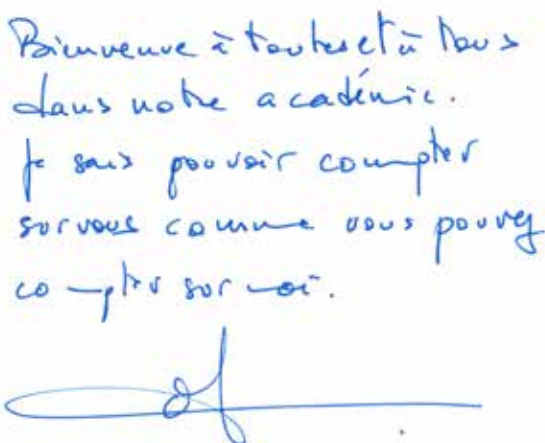 Bienvenue à toutes et à tous
dans notre académie.
Je sais pouvoir compter
sur vous comme vous pouvez
compter sur moi.